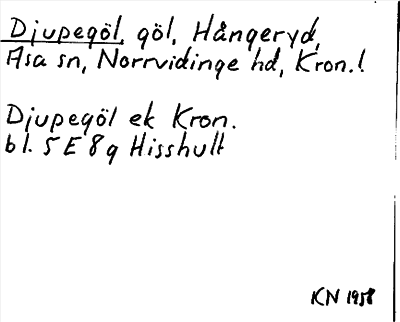 Djupegöl, göl, Hångeryd,
Asa sn, Norrvidinge hd, Kron.l
Djupegöl ek Kron.
bl. 5E8g Hisshult
KN 1958